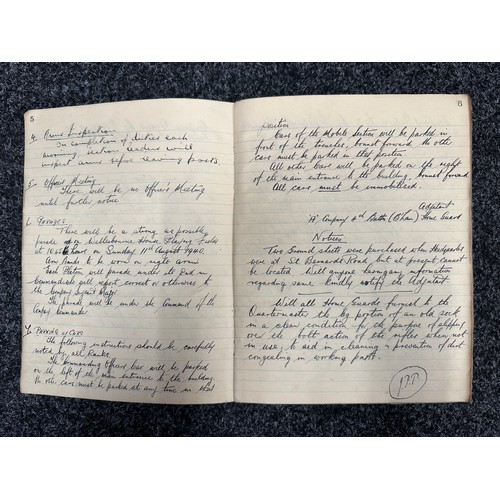 5
4. Arms Inspection
On completion of duties each
morning section leaders will
inspect arms before leaving posts.
5. Officers Meeting
There will be no Officer's Meeting
until further notice
6. Parades
There will be a strong as possible
parade on Wellesbourne House Playing Fields
at 10.45 hours on Sunday 11th August 1940.
Arm Bands to be worn on right arm.
Each Platoon will parade under its Pltn
Commander who will report correct or otherwise to
the Company Sergeant Major.
The parade will be under the command of the
Company Commander
7. Parking of Cars
The following instructions should be carefully
noted by all Ranks.
The Commanding Officers car will be parked
on the left of the main entrance to the building.
No other car must be parked at any time in that
6
position
Cars of the Mobile Section will be parked in
front of the trenches, bonnet forward. No other
cars must be parked in that position
All other cars will be parked on the right
of the main entrance to the building, bonnet forward.
All cars must be immobilised.
Adjutant
Company 4th Battn Home Guard
Notices
Two Ground sheets were purchased when Headquarters
were at St Bernards Road, but at present cannot
be located. Will anyone having any information
regarding same kindly notify the Adjutant.
Will all Home Guards forward to the
Quartermaster the leg portion of an old sock
in a clean condition for the purpose of slipping
over the bolt action of the rifles when not
in use, to aid in cleaning & prevention of dirt
congealing in working parts.